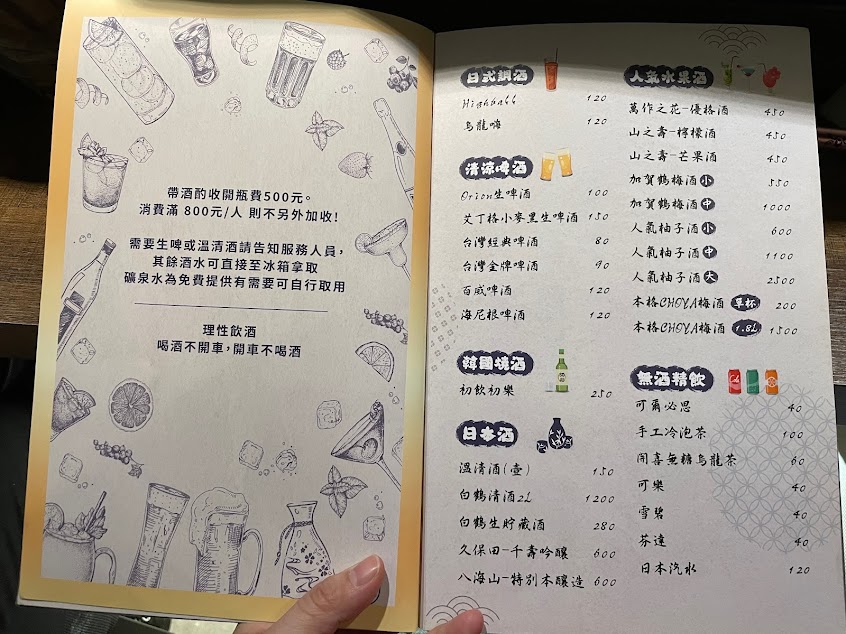 帶酒酌收開瓶費500元。
消費滿 800元/人 則不另外加收!
需要生啤或溫清酒請告知服務人員,
其餘酒水可直接至冰箱拿取
礦泉水為免費提供有需要可自行取用
理性飲酒
喝酒不開車,開車不喝酒
日式調酒
Highball 120
烏龍嗨 120
清涼啤酒
Orion生啤酒 100
艾丁格小麥黑生啤酒 150
台灣經典啤酒 80
台灣金牌啤酒 90
百威啤酒 120
海尼根啤酒 120
韓國燒酒
初飲初樂 250
日本酒
溫清酒(壺) 150
白鶴清酒2L 1200
白鶴生貯藏酒 280
久保田-千壽吟釀 600
八海山-特別本釀造 600
人氣水果酒
萬作之花-優格酒 450
山之壽-檸檬酒 450
山之壽-芒果酒 450
加賀鶴梅酒 小 550
加賀鶴梅酒 中 1000
人氣柚子酒 小 600
人氣柚子酒 中 1100
人氣柚子酒 大 2500
本格CHOYA梅酒 單杯 200
本格CHOYA梅酒 1.8L 1500
無酒精飲
可爾必思 40
手工冷泡茶 100
開喜無糖烏龍茶 60
可樂 40
雪碧 40
芬達 40
日本汽水 120